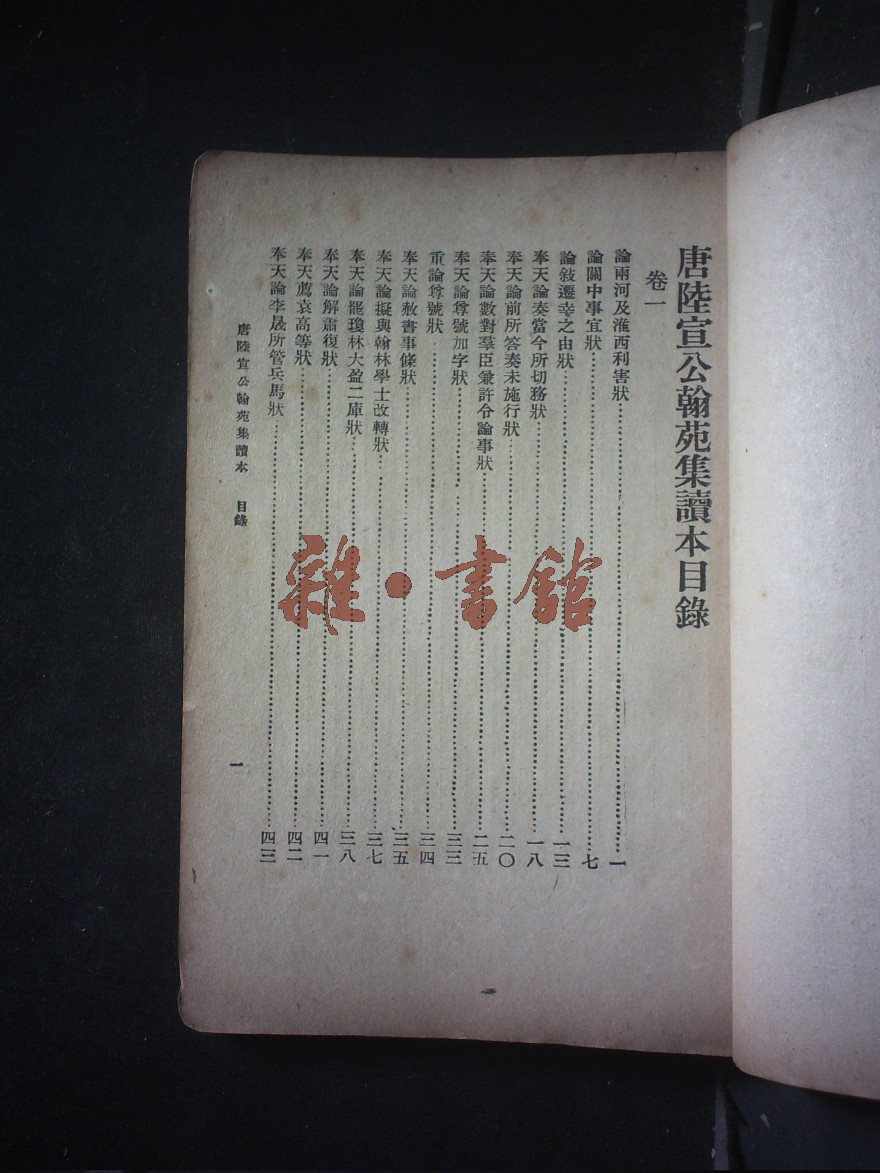 唐陸宣公翰苑集讀本目錄
卷一
論兩河及淮西利害狀……一
論關中事宜狀……七
論敍遷幸之由狀……一三
奉天論奏當今所切務狀……一八
奉天論前所答奏未施行狀……二〇
奉天論數對羣臣兼許令論事狀……二五
奉天論尊號加字狀……三三
重論尊號狀……三四
奉天論赦書事條狀……三五
奉天論擬與翰林學士改轉狀……三七
奉天論罷瓊林大盈二庫狀……三八
奉天論解蕭復狀……四一
奉天薦袁高等狀……四二
奉天論李晟所管兵馬狀……四三
唐陸宣公翰苑集讀本 目錄
一
雜·書館